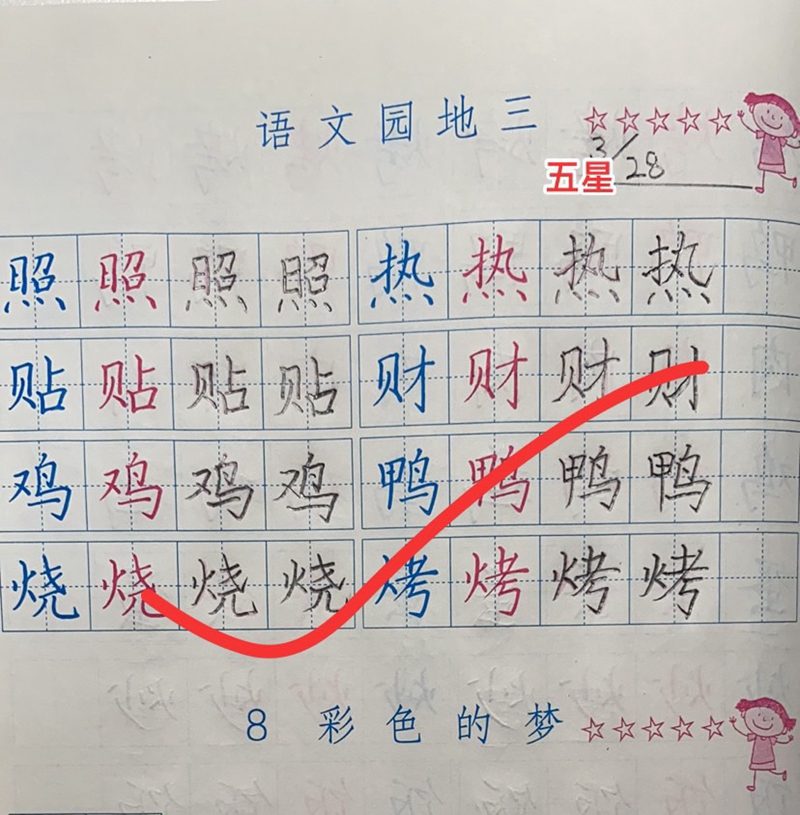 语文园地三
3/28
五星
照 照 照 照 热 热 热 热
贴 贴 贴 贴 财 财 财 财
鸡 鸡 鸡 鸡 鸭 鸭 鸭 鸭
烧 烧 烧 烧 烤 烤 烤 烤
8 彩色的梦